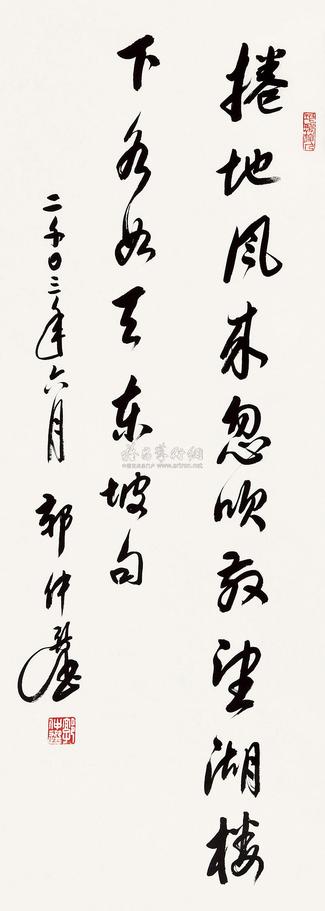 捲地风来忽吹散望湖楼
下水如天东坡句
二千〇三年六月 郭仲
雅昌艺术網
www.artron.net